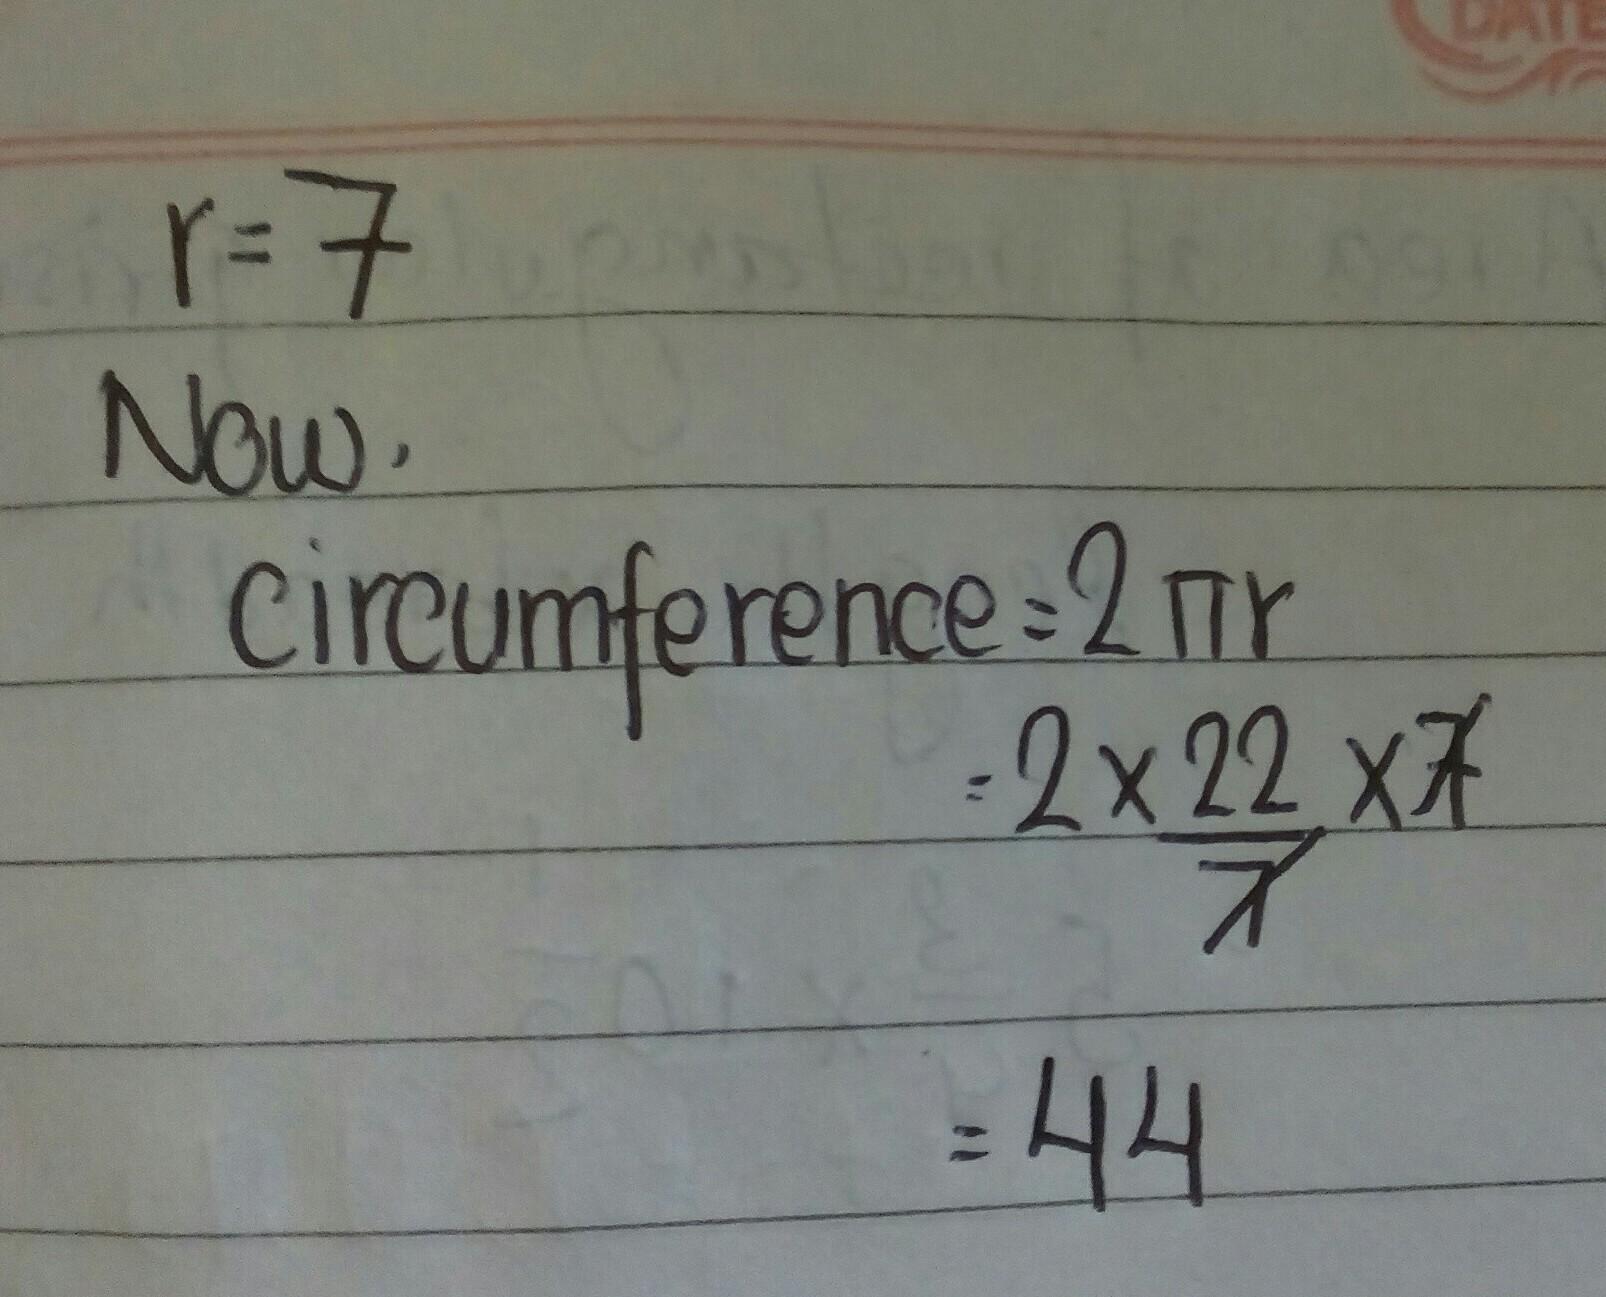 DATE
r = 7
Now,
circumference = 2πr
= 2 × 22/7 × 7
= 44